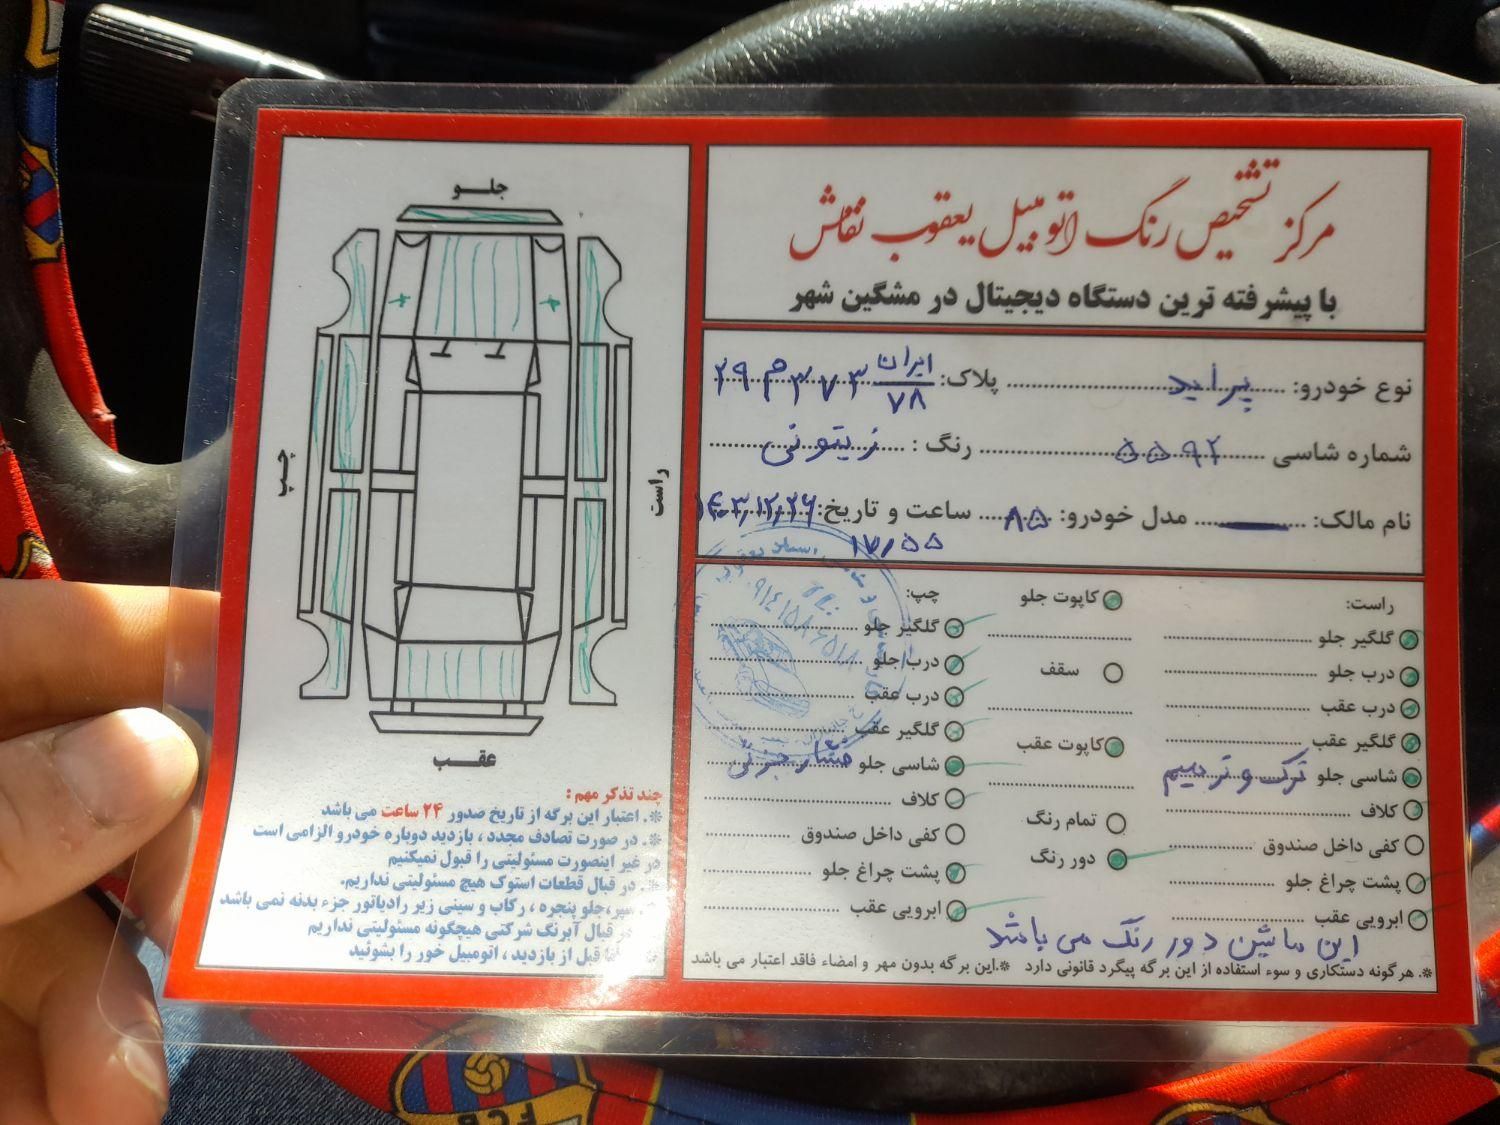 مرکز تشخیص رنگ اتومبیل یعقوب نقاش
با پیشرفته ترین دستگاه دیجیتال در مشگین شهر
نوع خودرو: پراید پلاک: ایران ۷۸ ۳۷۳ م ۲۹
شماره شاسی ۵۵۹۲ رنگ : زیتونی
نام مالک: مدل خودرو: ۸۵ ساعت و تاریخ: ۱۴۰۳/۱۲/۲۶
۱۷/۵۵
راست:
گلگیر جلو
درب جلو
درب عقب
گلگیر عقب
شاسی جلو ترک و ترمیم
کلاف
کفی داخل صندوق
پشت چراغ جلو
ابرویی عقب
کاپوت جلو
سقف
کاپوت عقب
تمام رنگ
دور رنگ
چپ:
گلگیر جلو
درب جلو
درب عقب
گلگیر عقب
شاسی جلو فشار جزئی
کلاف
کفی داخل صندوق
پشت چراغ جلو
ابرویی عقب
این ماشین دور رنگ می باشد
*. هرگونه دستکاری و سوء استفاده از این برگه پیگرد قانونی دارد *.این برگه بدون مهر و امضاء فاقد اعتبار می باشد
جلو
چپ
راست
عقب
چند تذکر مهم :
*. اعتبار این برگه از تاریخ صدور ۲۴ ساعت می باشد
*. در صورت تصادف مجدد ، بازدید دوباره خودرو الزامی است
در غیر اینصورت مسئولیتی را قبول نمیکنیم
در قبال قطعات استوک هیچ مسئولیتی نداریم.
سپر،جلو پنجره ، رکاب و سینی زیر رادیاتور جزء بدنه نمی باشد
در قبال آبرنگ شرکتی هیچگونه مسئولیتی نداریم
قبل از بازدید ، اتومبیل خور را بشوئید
۰۹۱۴۱۵۸۶۵۱۸
FCB